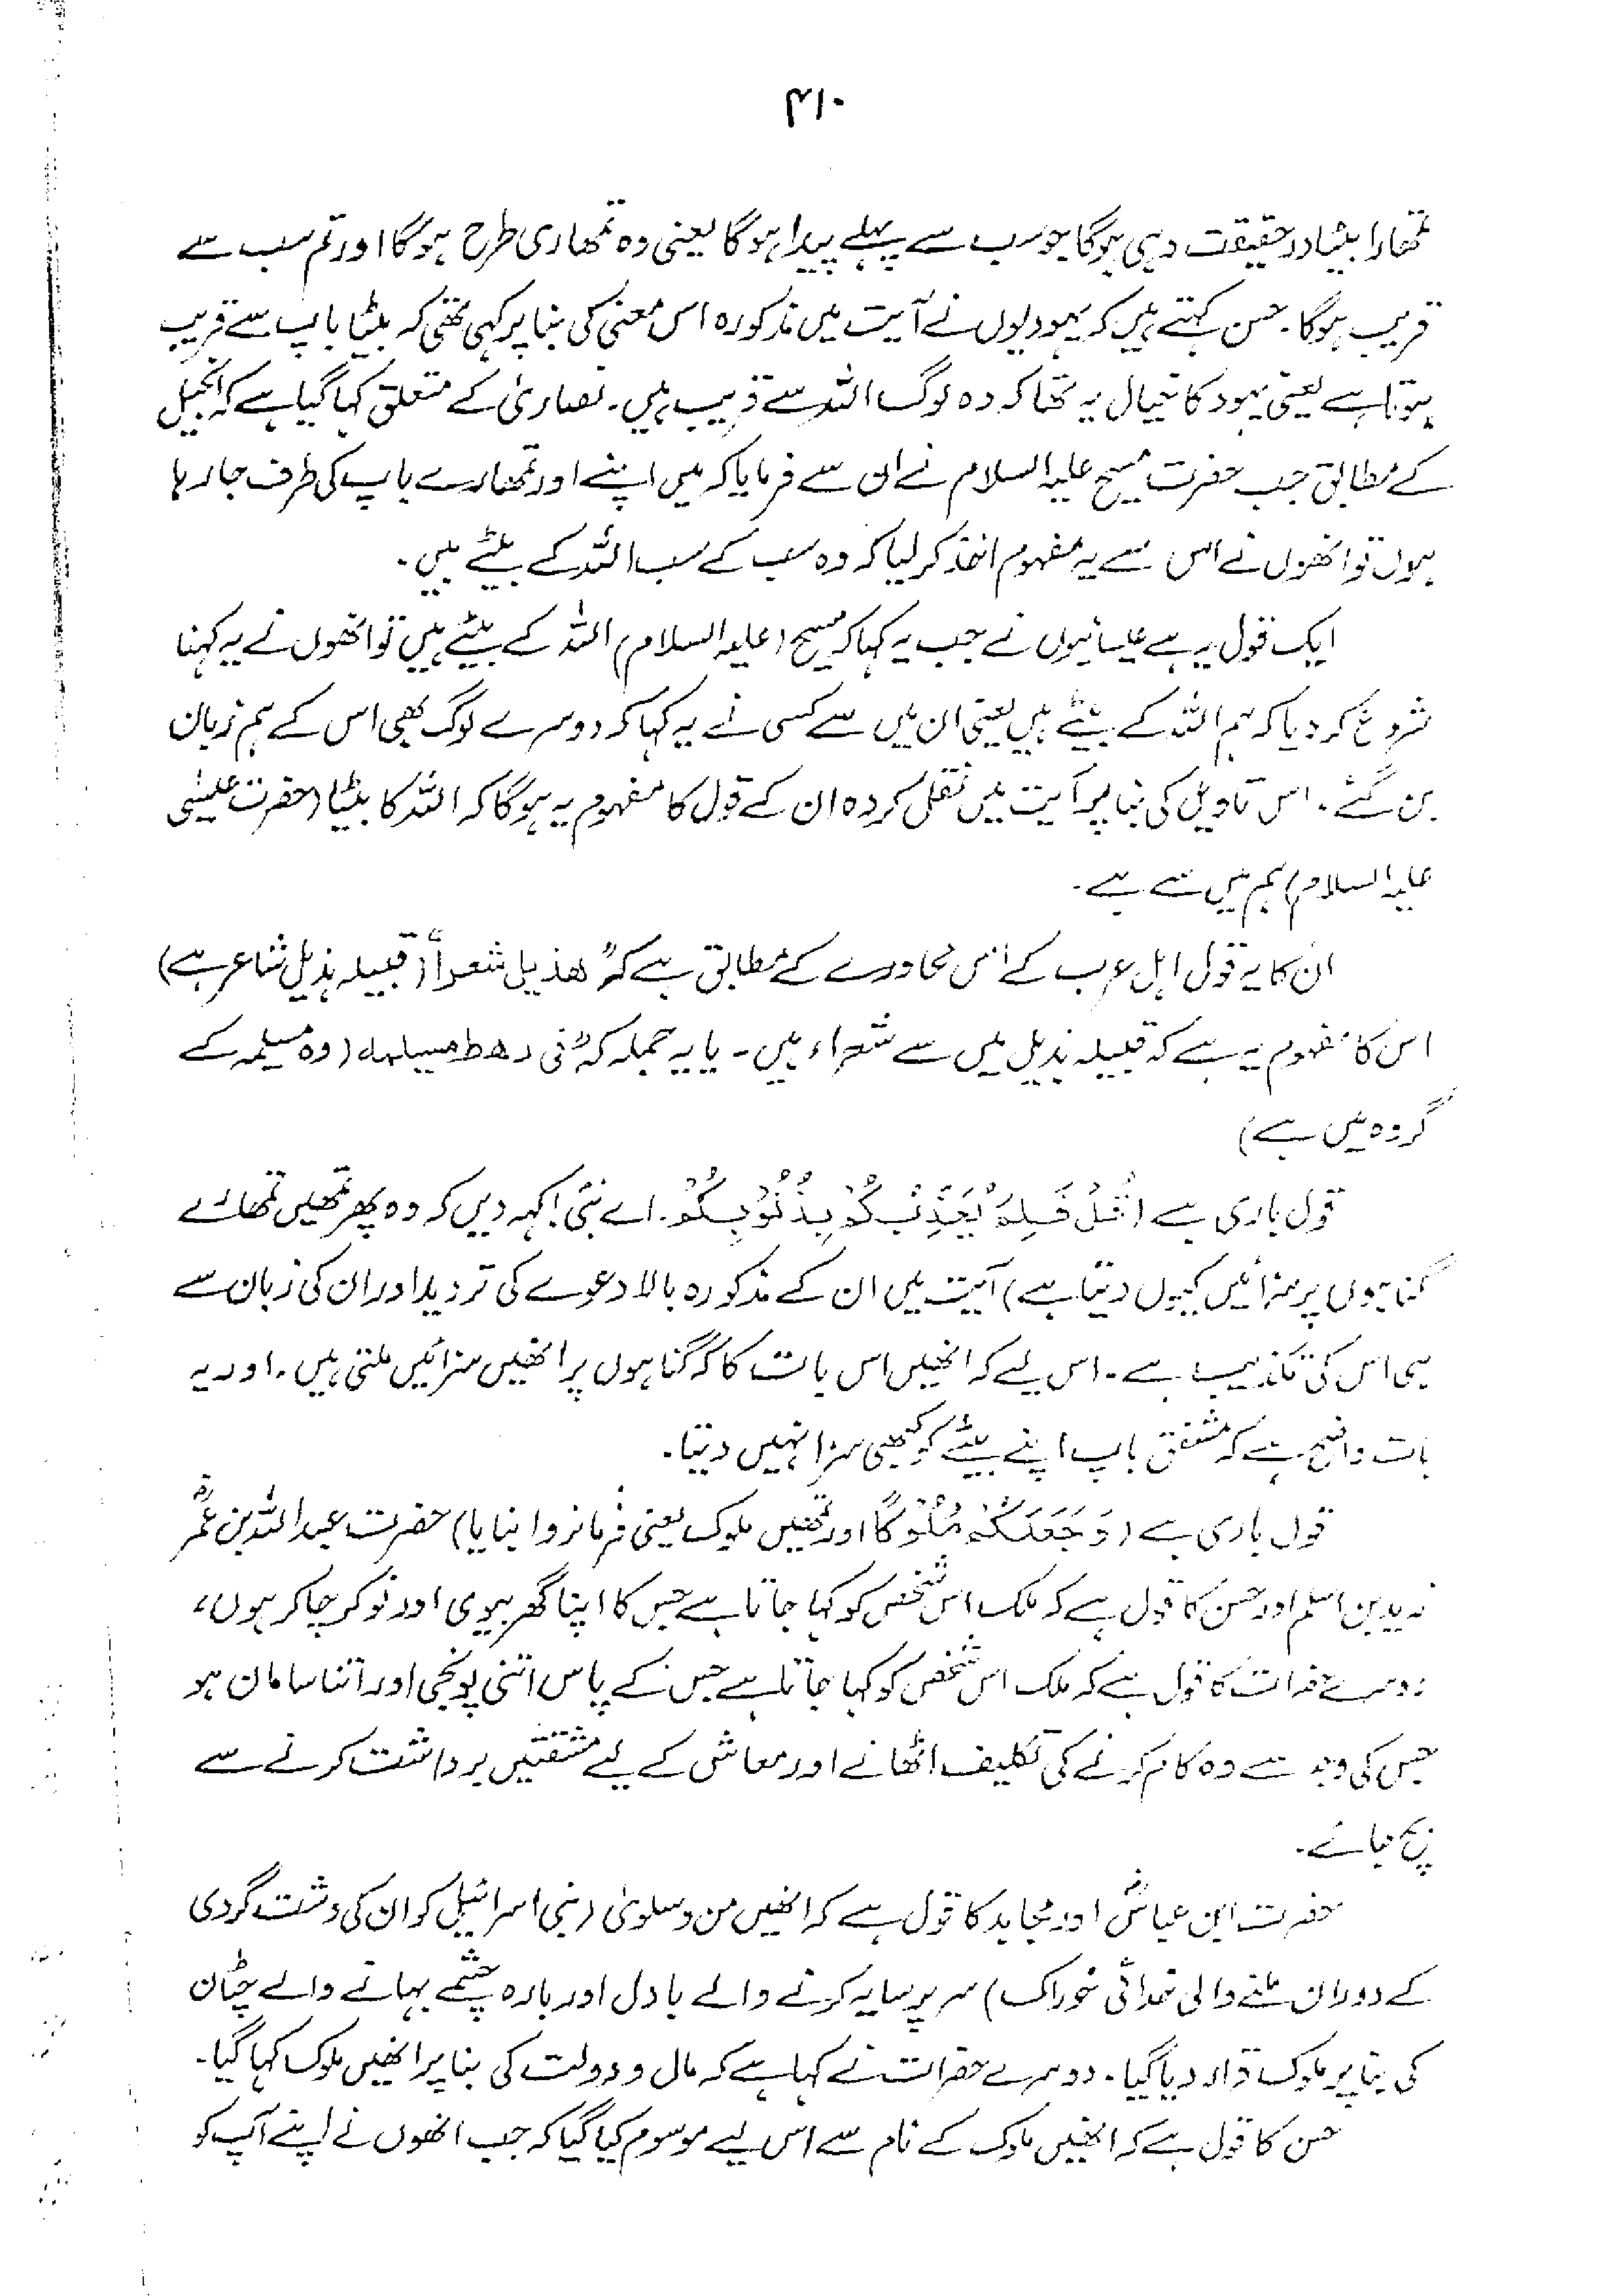 ۴۱۰
تمھارا بیٹا درحقیقت وہی ہوگا جو سب سے پہلے پیدا ہوگا یعنی وہ تمھاری طرح ہوگا اور تم سب سے
قریب ہوگا۔ حسن کہتے ہیں کہ یہودیوں نے آیت میں مذکورہ اس معنی کی بنا پر کہی تھی کہ بیٹا باپ سے قریب
ہوتا ہے یعنی یہود کا خیال یہ تھا کہ وہ لوگ اللہ سے قریب ہیں۔ نصاریٰ کے متعلق کہا گیا ہے کہ انجیل
کے مطابق جب حضرت مسیح علیہ السلام نے ان سے فرمایا کہ میں اپنے اور تمھارے باپ کی طرف جا رہا
ہوں تو انھوں نے اس سے یہ مفہوم اخذ کر لیا کہ وہ سب کے سب اللہ کے بیٹے ہیں۔
ایک قول یہ ہے عیسائیوں نے جب یہ کہا کہ مسیح (علیہ السلام) اللہ کے بیٹے ہیں تو انھوں نے یہ کہنا
شروع کر دیا کہ ہم اللہ کے بیٹے ہیں یعنی ان میں سے کسی نے یہ کہا کہ دوسرے لوگ بھی اس کے ہم زبان
بن گئے۔ اس تاویل کی بنا پر آیت میں نقل کردہ ان کے قول کا مفہوم یہ ہوگا کہ اللہ کا بیٹا (حضرت عیسیٰ
علیہ السلام) ہم میں سے ہے۔
ان کا یہ قول اہل عرب کے اس محاورے کے مطابق ہے کہ "ھذیل شعراً" (قبیلہ ہذیل شاعر ہے)
اس کا مفہوم یہ ہے کہ قبیلہ ہذیل میں سے شعراء ہیں۔ یا یہ جملہ کہ "فی رھط مسیلمہ (وہ مسیلمہ کے
گروہ میں ہے)
قول باری ہے (قُلْ فَلِمَ يُعَذِّبُكُمْ بِذُنُوبِكُمْ۔ اے نبی! کہہ دیں کہ وہ پھر تمھیں تمھارے
گناہوں پر سزائیں کیوں دیتا ہے) آیت میں ان کے مذکورہ بالا دعوے کی تردید اور ان کی زبان سے
ہی اس کی تکذیب ہے۔ اس لیے کہ انھیں اس بات کا کہ گناہوں پر انھیں سزائیں ملتی ہیں۔ اور یہ
بات واضح ہے کہ مشفق باپ اپنے بیٹے کو کبھی سزا نہیں دیتا۔
قول باری ہے (وَجَعَلَكُمْ مُلُوكًا اور تمھیں ملوک یعنی فرمانروا بنایا) حضرت عبداللہ بن عمرؓ
زید بن اسلم اور حسن کا قول ہے کہ ملک اس شخص کو کہا جاتا ہے جس کا اپنا گھر بیوی اور نوکر چاکر ہوں،
دوسرے حضرات کا قول ہے کہ ملک اس شخص کو کہا جاتا ہے جس کے پاس اتنی پونجی اور اتنا سامان ہو
جس کی وجہ سے وہ کام کرنے کی تکلیف اٹھانے اور معاش کے لیے مشقتیں برداشت کرنے سے
بچ جائے۔
حضرت ابن عباسؓ اور مجاہد کا قول ہے کہ انھیں من و سلویٰ (بنی اسرائیل کو ان کی دشت گردی
کے دوران ملنے والی خدائی خوراک) سر پر سایہ کرنے والے بادل اور بارہ چشمے بہانے والے چٹان
کی بنا پر ملوک قرار دیا گیا۔ دوسرے حضرات نے کہا ہے کہ مال و دولت کی بنا پر انھیں ملوک کہا گیا۔
حسن کا قول ہے کہ انھیں ملوک کے نام سے اس لیے موسوم کیا گیا کہ جب انھوں نے اپنے آپ کو